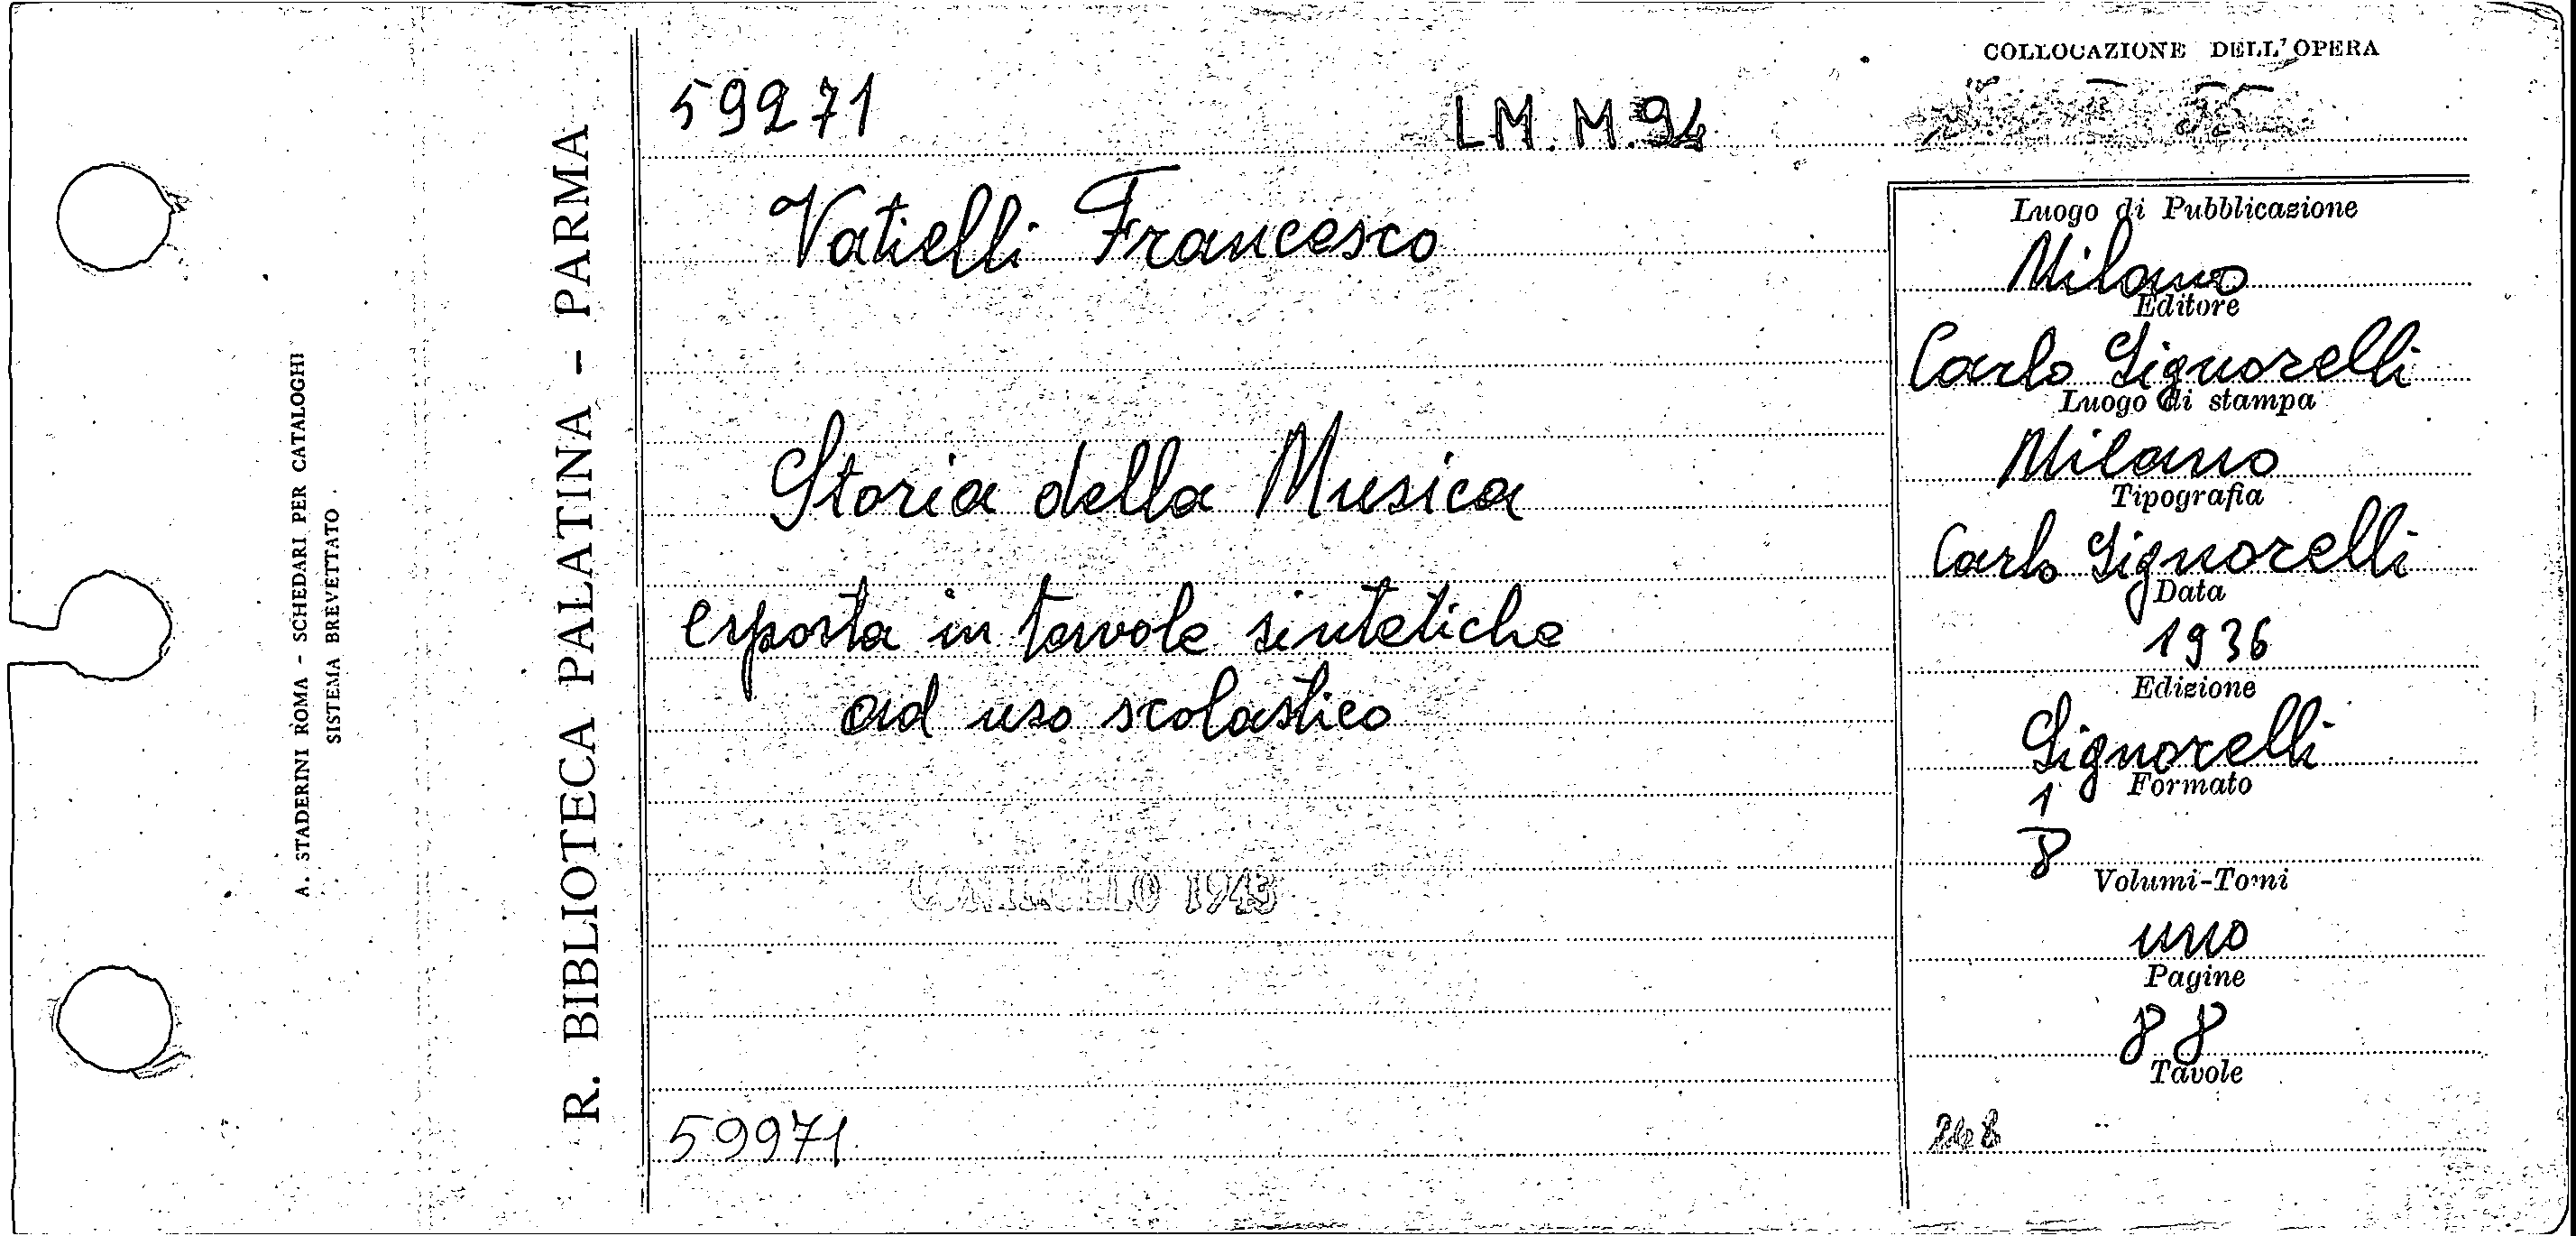 A. STADERINI ROMA - SCHEDARI PER CATALOGHI
SISTEMA BREVETTATO
R. BIBLIOTECA PALATINA - PARMA
59271
LM. M.94
Vatielli Francesco
Storia della Musica
esposta in tavole sintetiche
ad uso scolastico
1943
59971
COLLOCAZIONE DELL'OPERA
Luogo di Pubblicazione
Milano
Editore
Carlo Signorelli
Luogo di stampa
Milano
Tipografia
Carlo Signorelli
Data
1936
Edizione
Signorelli
Formato
1
8
Volumi-Tomi
uno
Pagine
88
Tavole